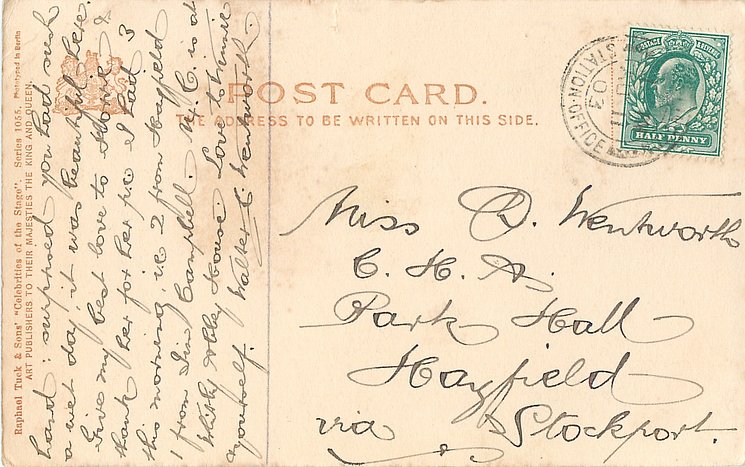 POST CARD.
THE ADDRESS TO BE WRITTEN ON THIS SIDE.
Raphael Tuck & Sons' "Celebrities of the Stage" Series 1055. Phototyped in Berlin
ART PUBLISHERS TO THEIR MAJESTIES THE KING AND QUEEN.
hand: surprised you had such
a wet day, it was beautiful here.
Give my best love to &
thank her for her p.c. I had 3
this morning, i.e. 2 from Hayfield
1 from Campbell. is at
Whitby House. Love to
yourself. Walter C. Wentworth.
STATION-OFFICE
03
POSTAGE & REVENUE
HALF PENNY
Miss D. Wentworth
C. H. A.
Park Hall
Hayfield
via Stockport.